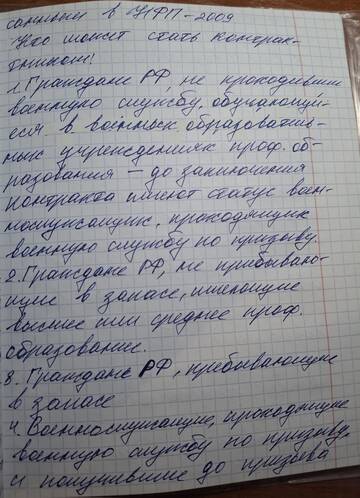 саниям в НФП-2009
Кто может стать контрак-
тником!
1. Граждане РФ, не проходившие
военную службу, обучающи-
еся в военных образователь-
ных учреждениях проф. об-
разования – до заключения
контракта имеют статус воен-
нослужащих, проходящих
военную службу по призыву.
2. Граждане РФ, не прибываю-
щие в запасе, имеющие
высшее или среднее проф.
образование.
3. Граждане РФ, прибывающие
в запасе
4. Военнослужащие, проходящие
военную службу по призыву,
и получившие до призыва